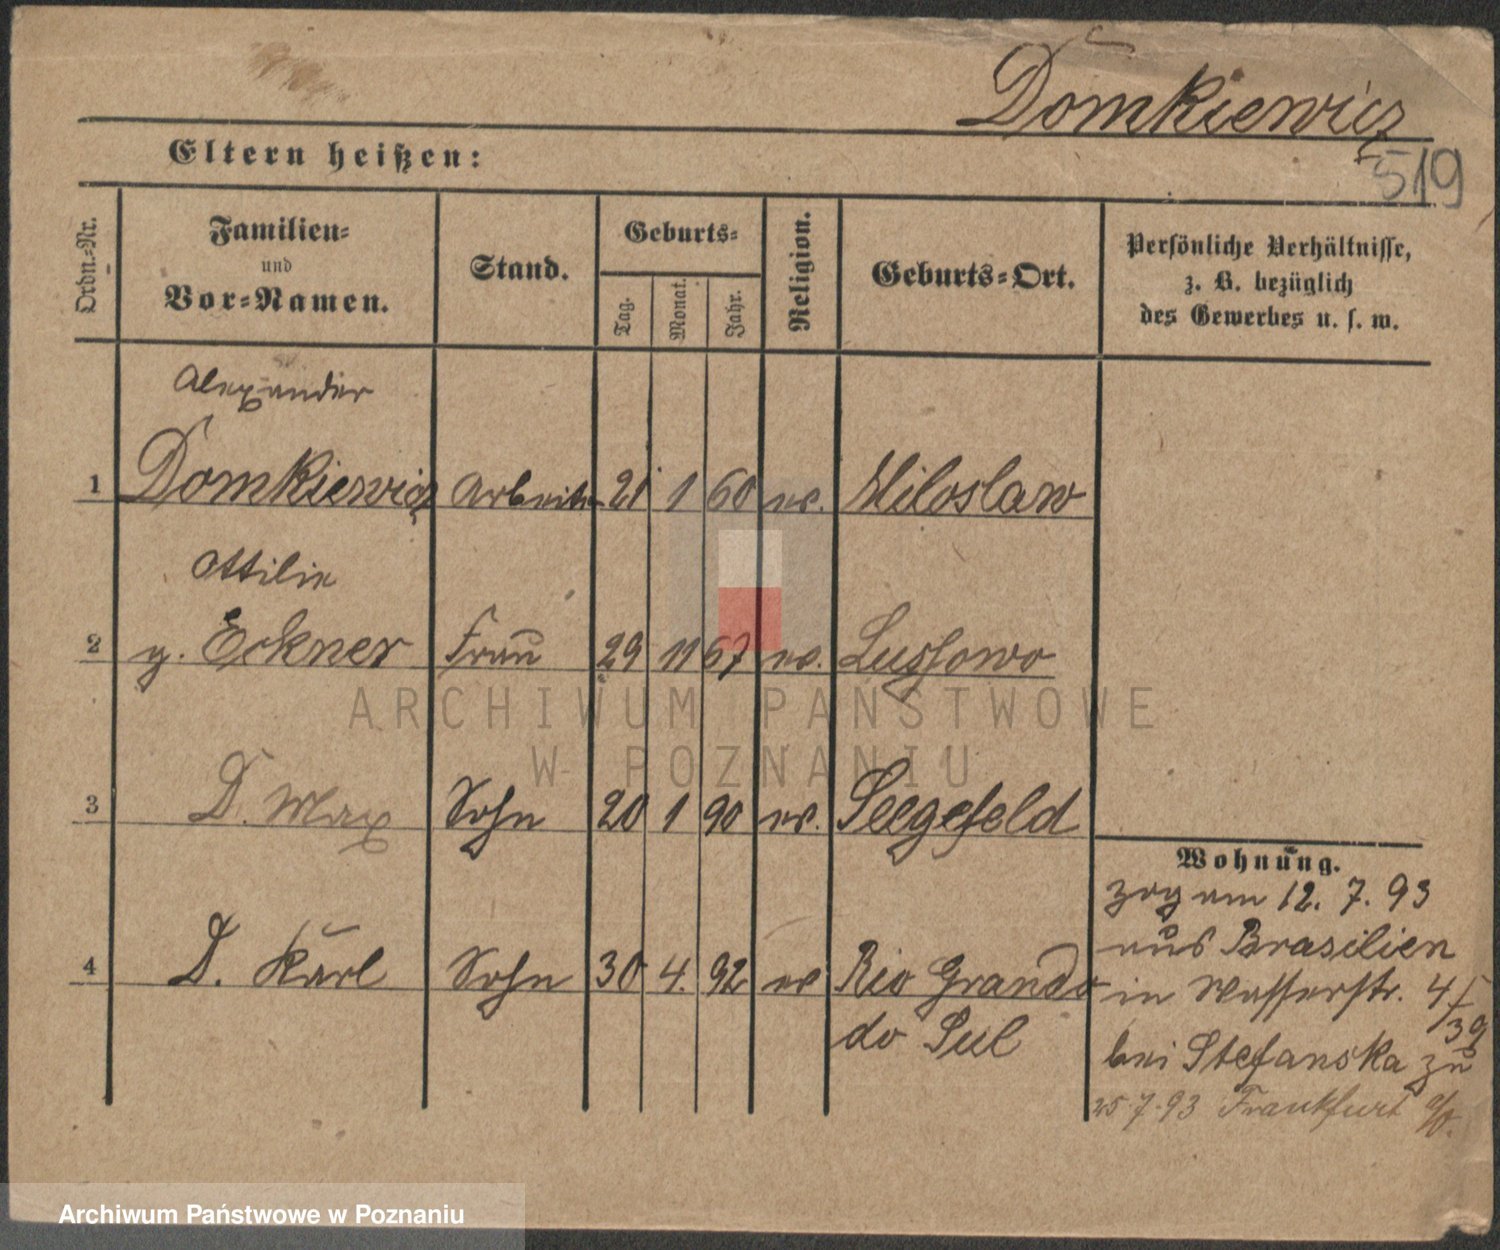 Domkiewicz
519
Eltern heißen:
Ordn.-Nr.
Familien-
und
Vor-Namen.
Stand.
Geburts-
Tag.
Monat.
Jahr.
Religion.
Geburts-Ort.
Persönliche Verhältnisse,
z. B. bezüglich
des Gewerbes u. s. w.
Alexander
1 Domkiewicz Arbeiter 21 1 60 ev. Miloslaw
Ottilie
2 g. Eckner Frau 29 11 67 ev. Lussowo
3 D. Max Sohn 20 1 90 ev. Seegefeld
4 D. Karl Sohn 30 4. 92 ev Rio Grando
do Sul
Wohnung.
zog am 12. 7. 93
aus Brasilien
in Wasserstr. 4/5
39
bei Stefanska zu
25 7. 93 Frankfurt a/O.
ARCHIWUM PAŃSTWOWE
W POZNANIU
Archiwum Państwowe w Poznaniu